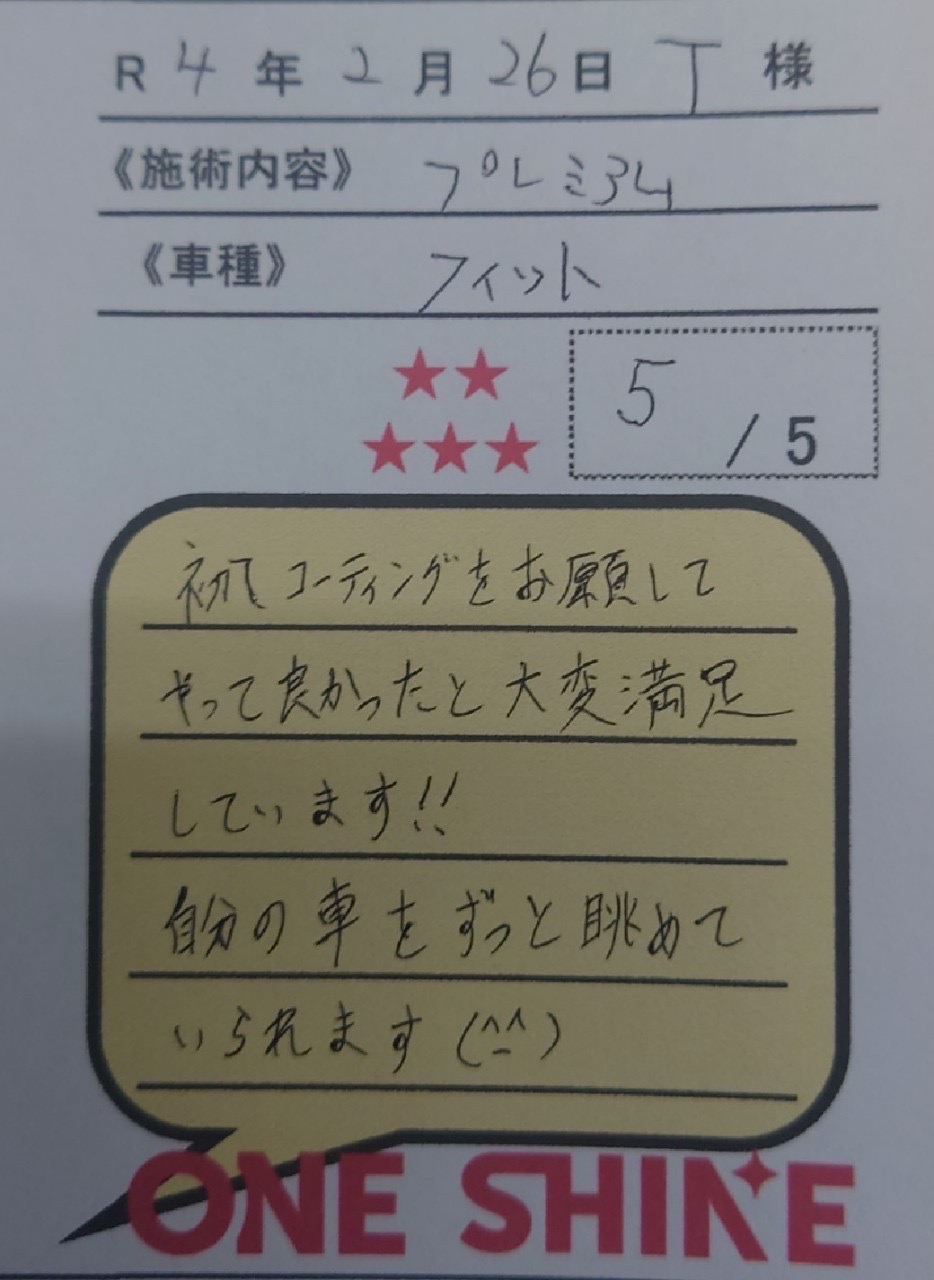 R 4 年 2 月 26 日 T 様
《施術内容》 プレミアム
《車種》 フィット
★★
★★★
5 / 5
初てコーティングをお願して
やって良かったと大変満足
しています!!
自分の車をずっと眺めて
いられます (^-^)
ONE SHINE